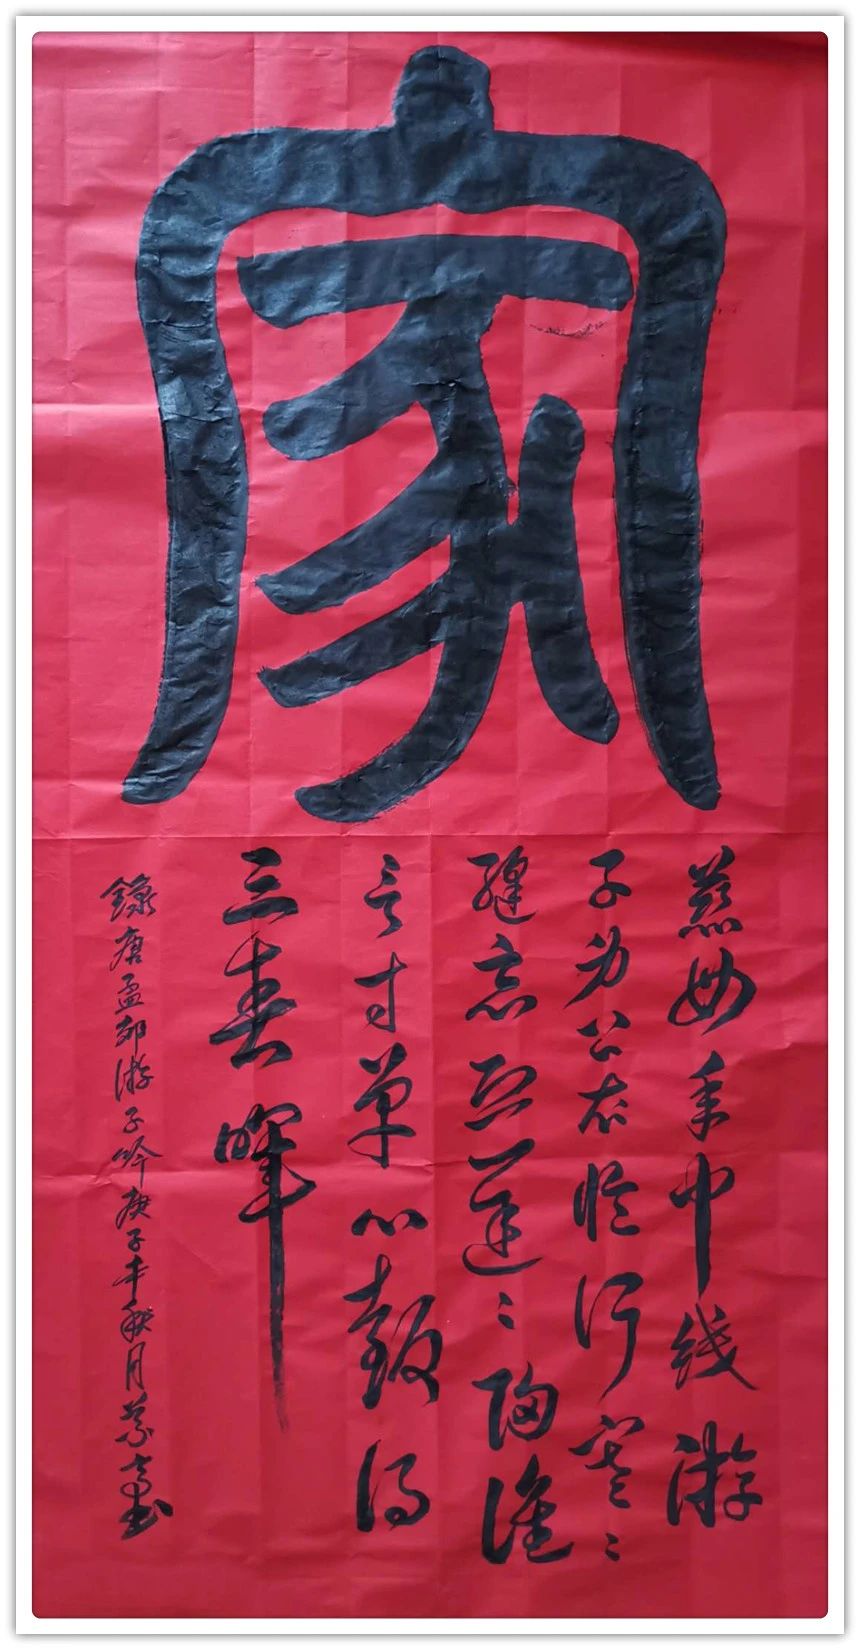 家
慈母手中线游
子身上衣临行密〻
缝意恐遲〻歸谁
言寸草心報得
三春暉
錄唐孟郊游子吟庚子年秋月书